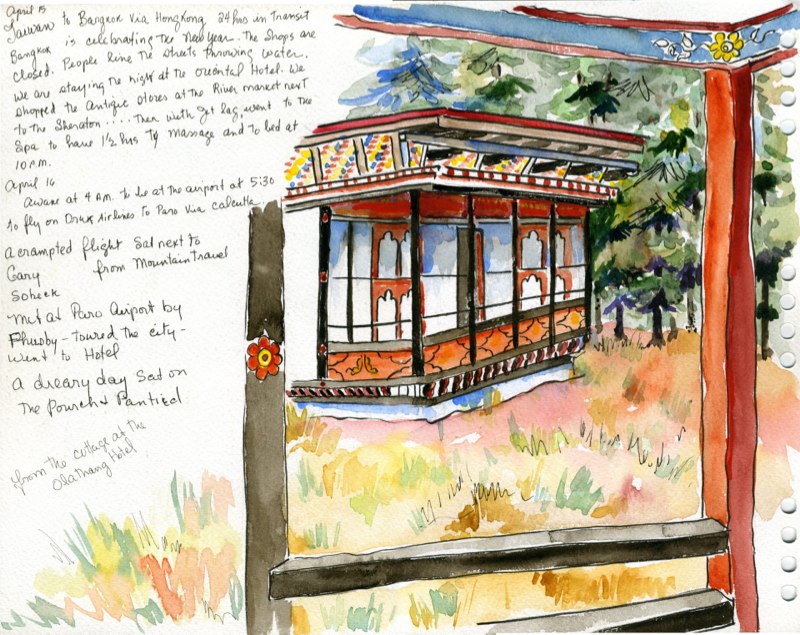 April 15
Taiwan to Bangkok via HongKong 24 hrs in transit
Bangkok is celebrating the New Year. The shops are
closed. People line the streets throwing water.
We are staying the night at the Oriental Hotel. We
shopped the Antique stores at the River market next
to the Sheraton .... Then with jet lag, went to the
Spa to have 1½ hrs massage and to bed at
10 P.M.
April 16
Awake at 4 AM. to be at the airport at 5:30
to fly on Druk Airlines to Paro via Calcutta.
a crampted flight Sat next to
Gary from Mountain Travel
Sobeck
Met at Paro Airport by
- toured the city -
went to Hotel
a dreary day Sat on
The Pourch & Pantied
from the cottage at the
Olathang Hotel